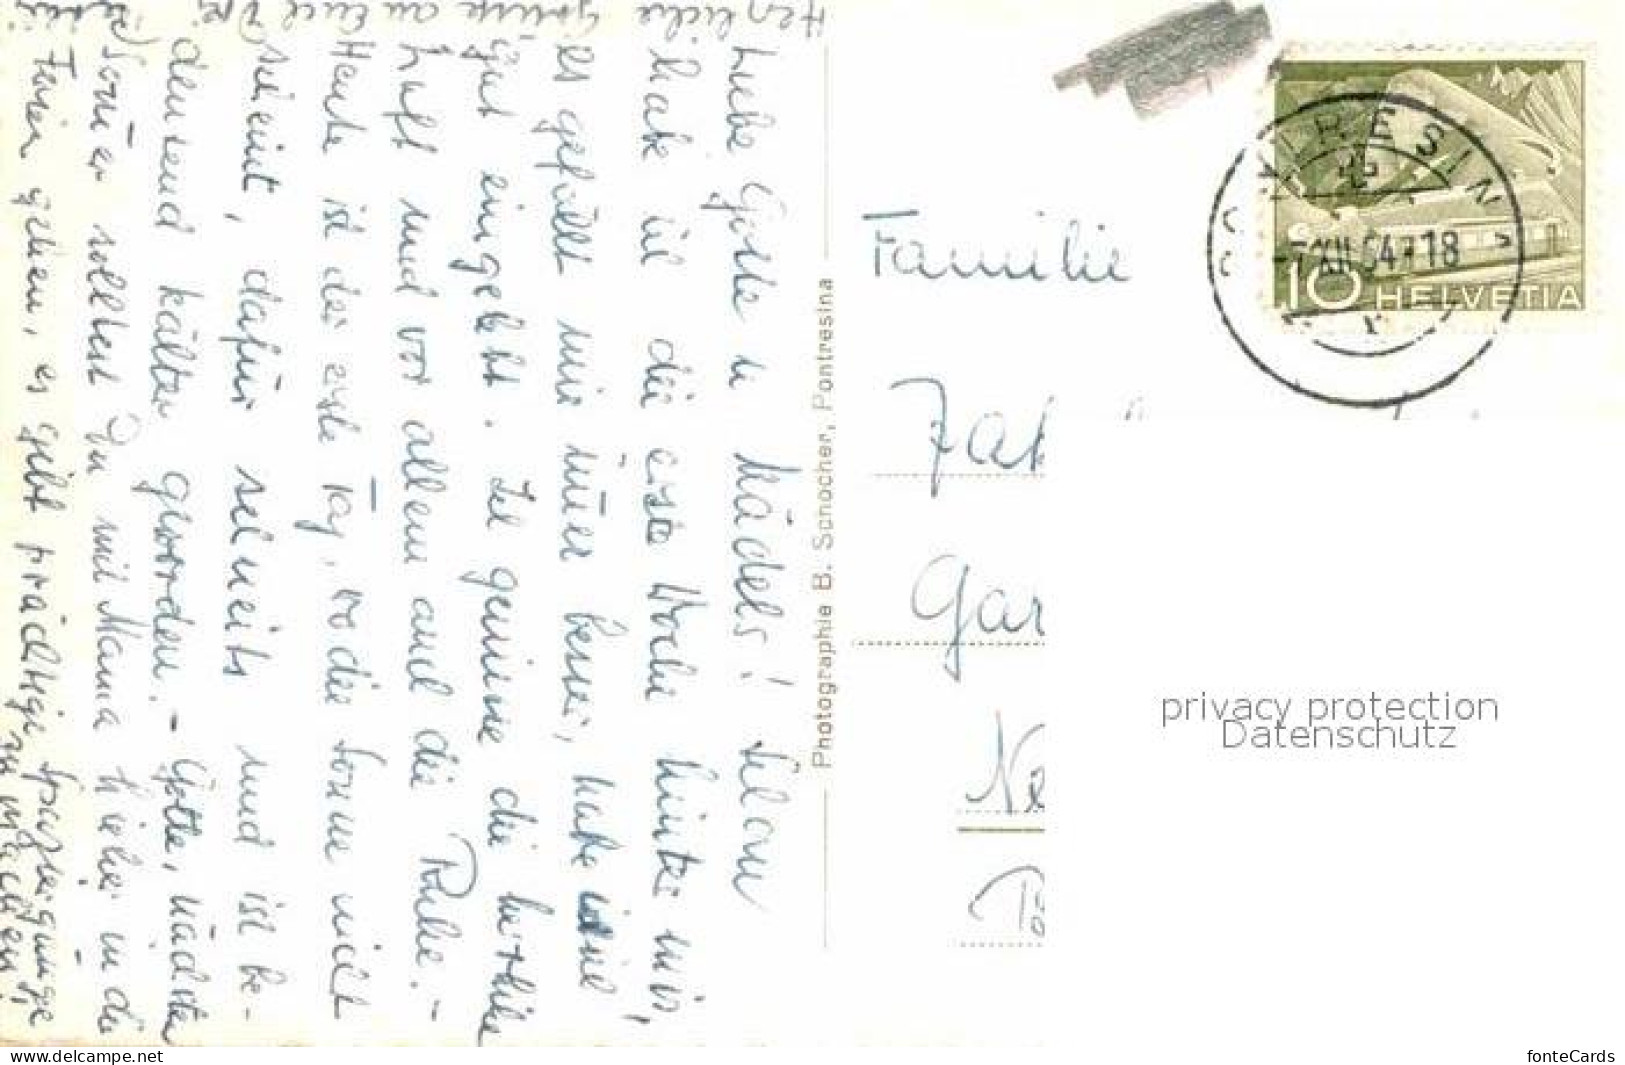 Liebe Gotte u Mädels! Schon
habe ich die erste Woche hinter mir,
es gefällt mir im̅er besser, habe mich
gut eingelebt. Ich geniesse die herrliche
Luft und vor allem auch die Ruhe. –
Heute ist der erste Tag, wo die Sonne nicht
scheint, dafür schneits und ist be-
deutend kälter geworden. – Gotte, nächsten
Som̅er solltest Du mit Mama hieher in die
Ferien gehen, es gibt prächtige Spaziergänge
zu machen!
Herzliche
Grüsse an Euch
Photographie B. Schocher, Pontresina
PONTRESINA
-7.XII.54-18
10 HELVETIA
Familie
Jak
Gar
Ne
privacy protection
Datenschutz
www.delcampe.net
fonteCards